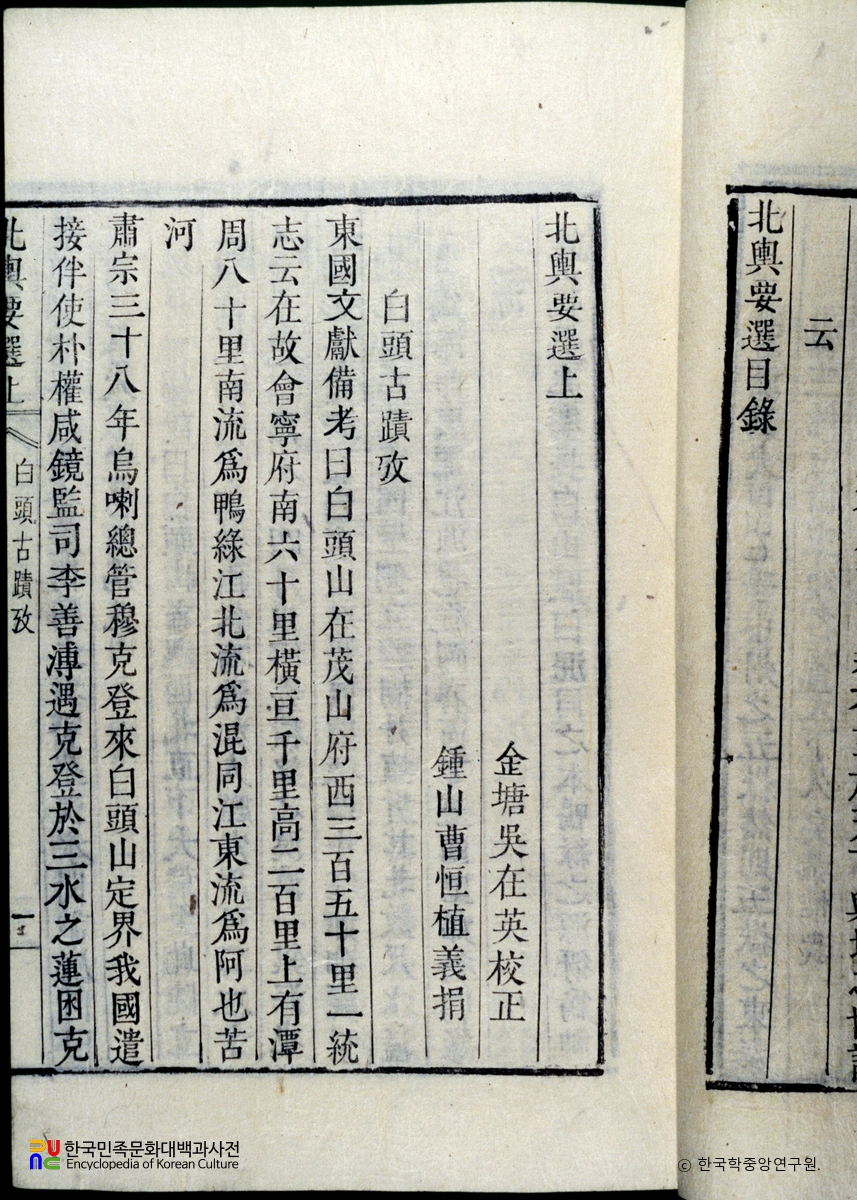 云
北輿要選目錄
北輿要選上
金塘吳在英校正
鍾山曹恒植義捐
白頭古蹟攷
東國文獻備考曰白頭山在茂山府西三百五十里一統
志云在故會寧府南六十里橫亘千里高二百里上有潭
周八十里南流爲鴨綠江北流爲混同江東流爲阿也苦
河
肅宗三十八年烏喇總管穆克登來白頭山定界我國遣
接伴使朴權咸鏡監司李善溥遇克登於三水之蓮困克
北輿要選上 白頭古蹟攷 一
한국민족문화대백과사전
Encyclopedia of Korean Culture
© 한국학중앙연구원.